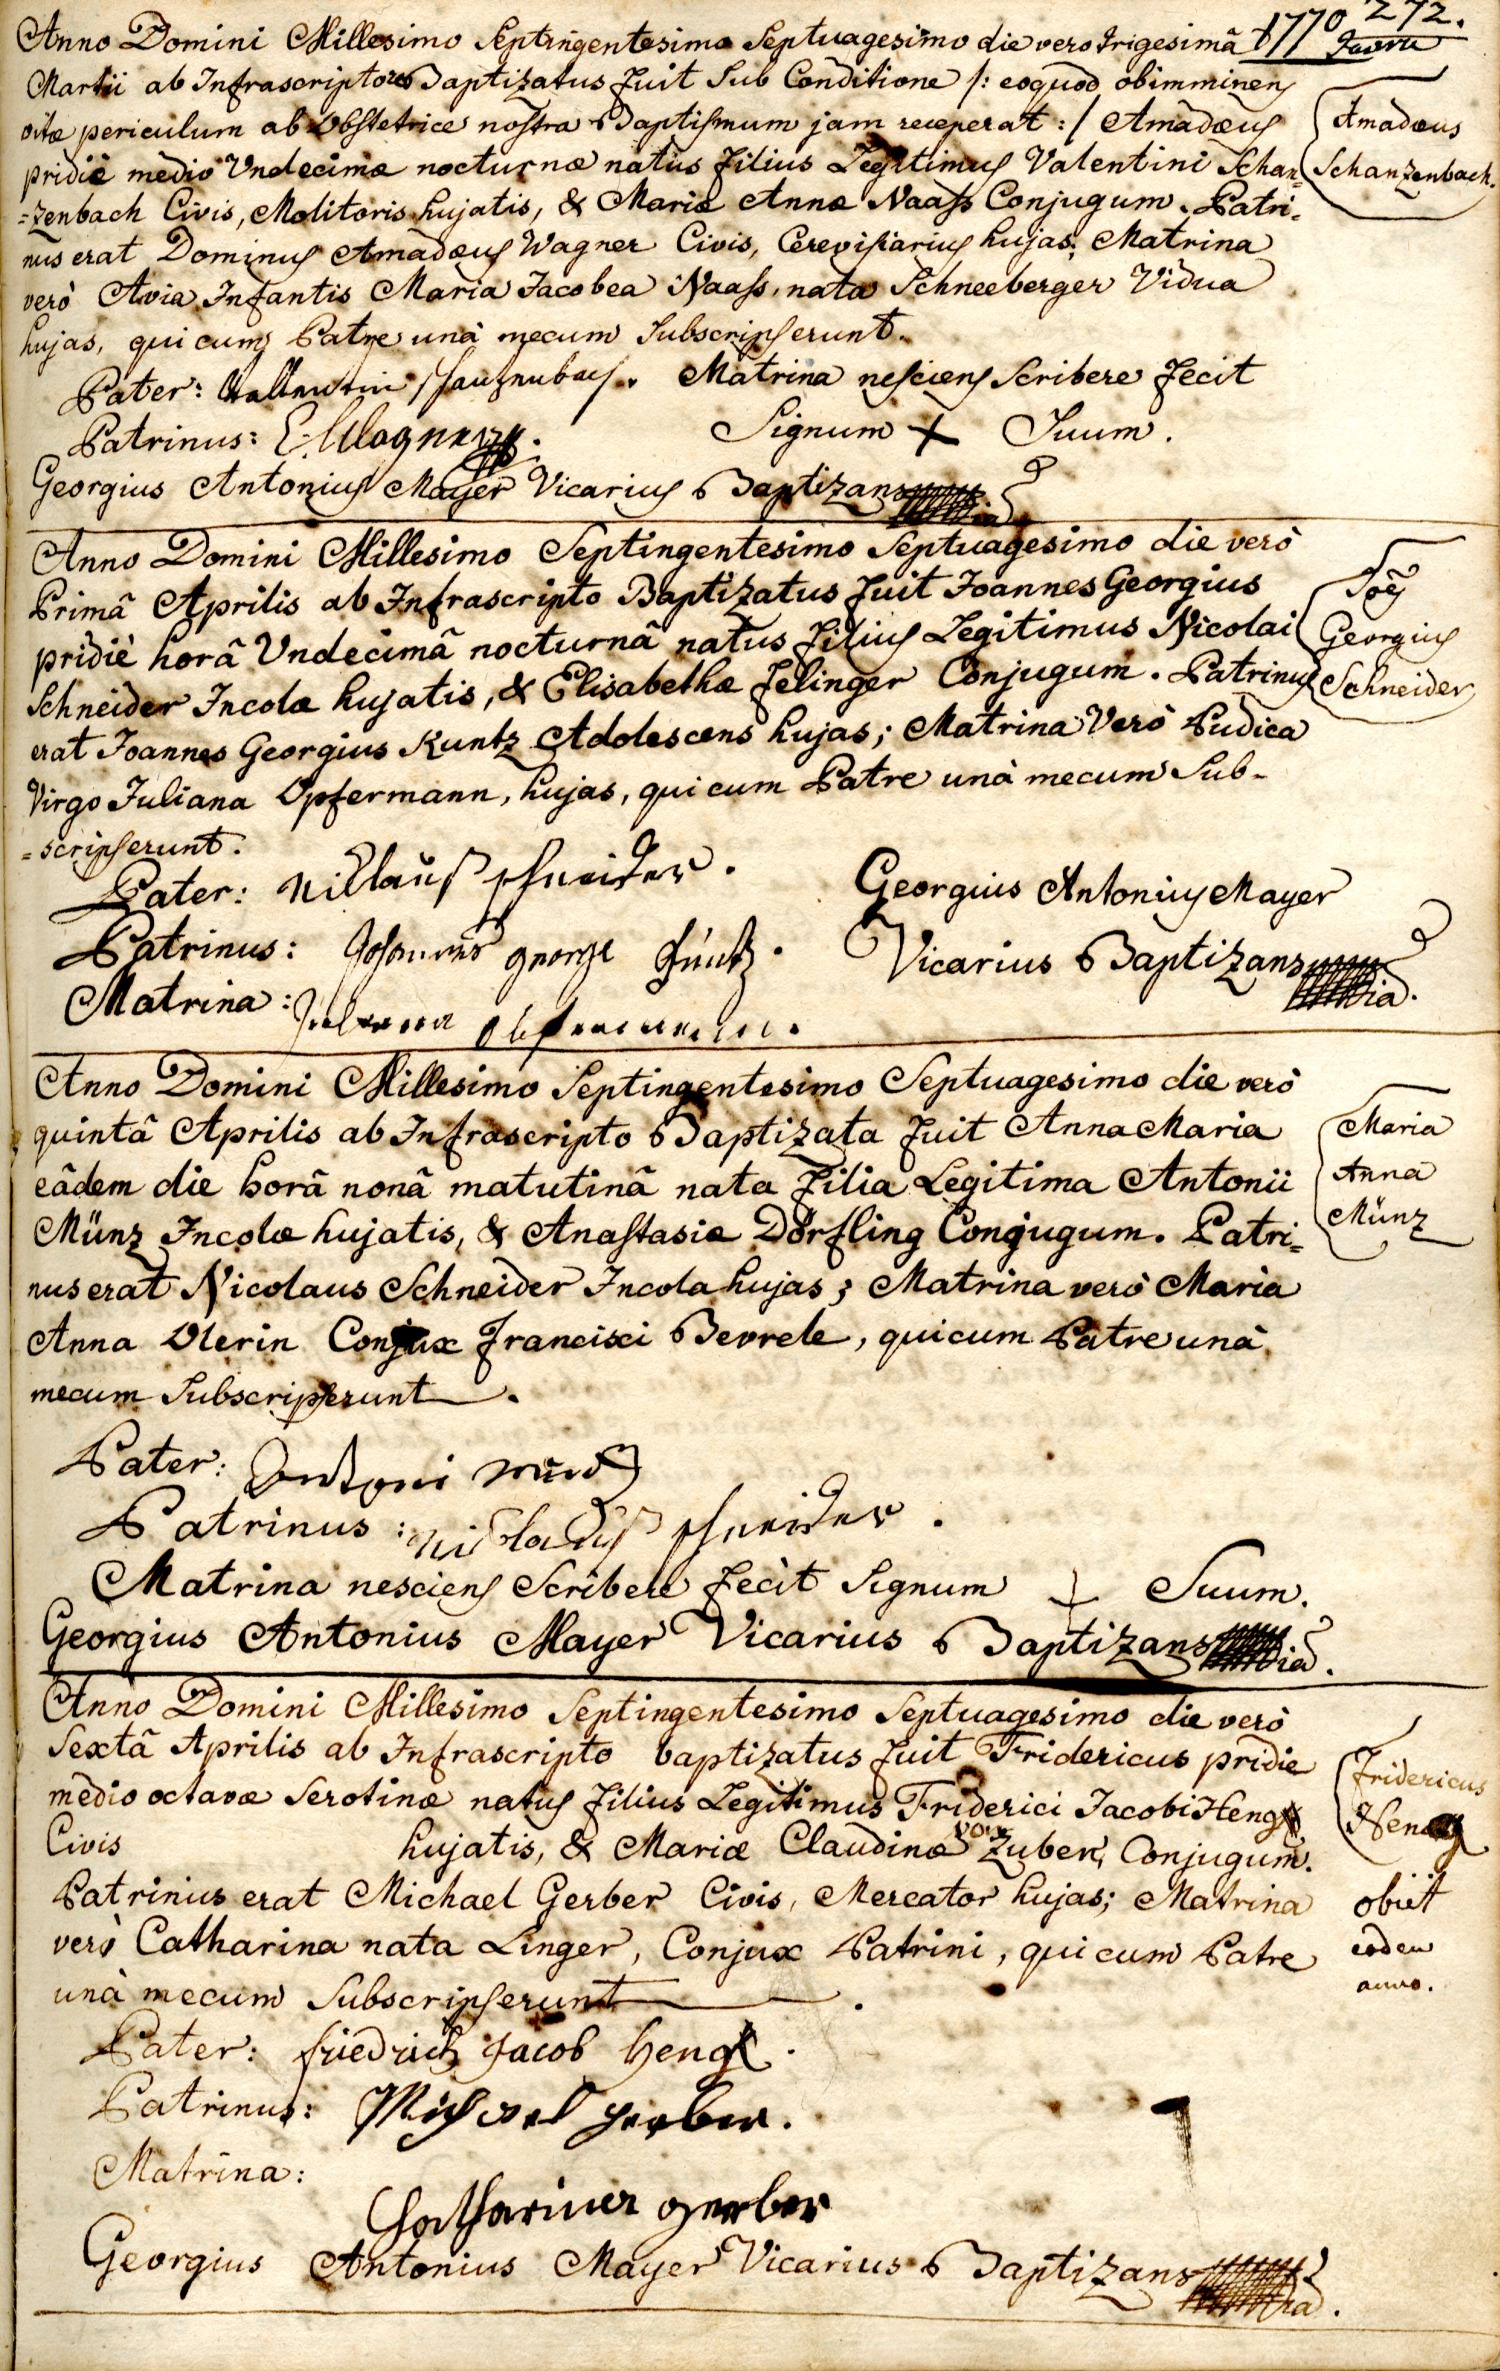 1770 272.
Anno Domini Millesimo Septingentesimo Septuagesimo die vero trigesimâ
Martii ab Infrascripto Baptizatus fuit sub Conditione /: eoquod obimminens
vitæ periculum ab Obstetrice nostra Baptismum jam receperat :/ Amadæus
pridiè mediò Undecimæ nocturnæ natus filius Legitimus Valentini Schan-
=zenbach Civis, Molitoris hujatis, & Mariæ Annæ Naass Conjugum. Patri=
nus erat Dominus Amadæus Wagner Civis, Cerevisiarius hujas; Matrina
verò Avia Infantis Maria Jacobea Naass, nata Schneeberger Vidua
hujas, qui cum Patre unà mecum Subscripserunt.
Amadæus
Schanzenbach.
Pater: Vallentin Schanzenbach. Matrina nesciens Scribere fecit
Patrinus: Wagner. Signum + Suum.
Georgius Antonius Mayer Vicarius Baptizans
Anno Domini Millesimo Septingentesimo Septuagesimo die verò
Primâ Aprilis ab Infrascripto Baptizatus fuit Joannes Georgius
pridiè horâ Undecimâ nocturnâ natus filius Legitimus Nicolai
Schneider Incolæ hujatis, & Elisabethæ Felinger Conjugum. Patrinus
erat Joannes Georgius Kuntz Adolescens hujas; Matrina Verò Pudica
Virgo Juliana Opfermann, hujas, qui cum Patre unà mecum Sub-
=scripserunt.
Joës
Georgius
Schneider
Pater: Nicklauß schneider.
Patrinus: Johannes george Kuntz.
Matrina: Juliana Opfermannin.
Georgius Antonius Mayer
Vicarius Baptizans
Anno Domini Millesimo Septingentesimo Septuagesimo die verò
quintâ Aprilis ab Infrascripto Baptizata fuit Anna Maria
eâdem die horâ nonâ matutinâ nata filia Legitima Antonii
Münz Incolæ hujatis, & Anastasiæ Dörfling Conjugum. Patri=
nus erat Nicolaus Schneider Incola hujas; Matrina verò Maria
Anna Olerin Conjux Francisci Bevrele, qui cum Patre unà
mecum Subscripserunt.
Maria
Anna
Münz
Pater: Antoni
Patrinus: Nicklauß schneider.
Matrina nesciens Scribere fecit Signum + Suum.
Georgius Antonius Mayer Vicarius Baptizans
Anno Domini Millesimo Septingentesimo Septuagesimo die verò
Sextâ Aprilis ab Infrascripto baptizatus fuit Fridericus pridie
medio octavæ Serotinæ natus filius Legitimus Friderici Jacobi
Civis hujatis, & Mariæ Claudinæ von Zuber, Conjugum.
Patrinius erat Michael Gerber Civis, Mercator hujas; Matrina
verò Catharina nata Linger, Conjux Patrini, qui cum Patre
unà mecum Subscripserunt.
Fridericus
obiit
eodem
anno.
Pater: friedrich Jacob
Patrinus: Michael gerber.
Matrina:
Chatharina gerber
Georgius Antonius Mayer Vicarius Baptizans